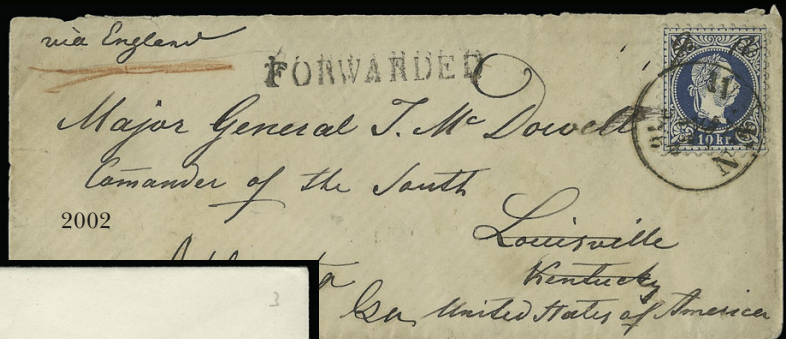 via England
FORWARDED
Major General I. Mc Dowell
Comander of the South
10 kr.
2002
Louisville
Kentucky
Ga United States of America
3